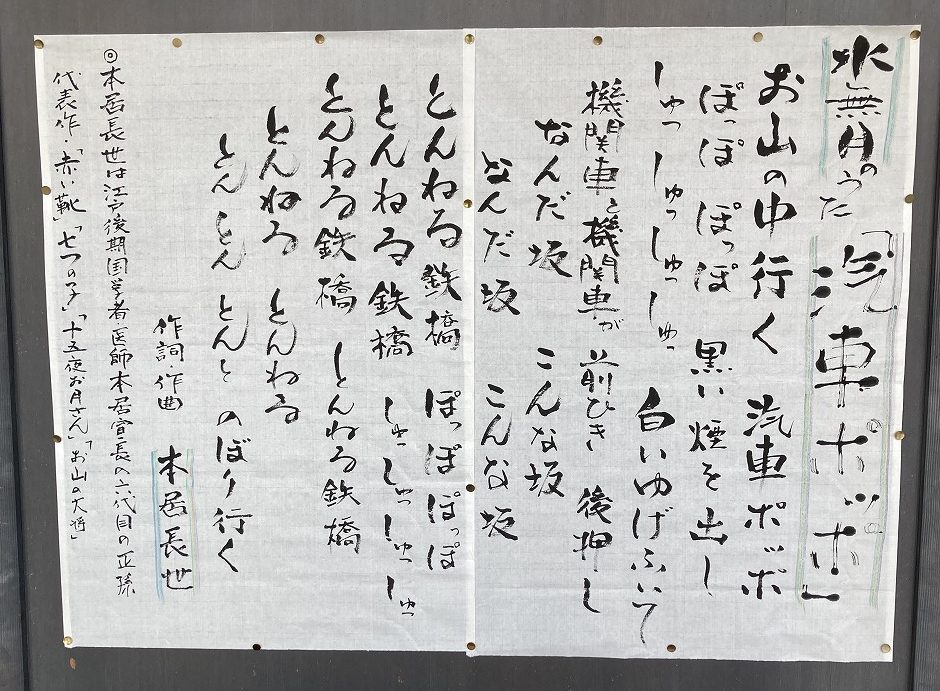 水無月のうた 『汽車ポッポ』
お山の中行く 汽車ポッポ
ぽっぽ ぽっぽ 黒い煙を出し
しゅっ しゅっ しゅっ しゅっ 白いゆげふいて
機関車と機関車が 前ひき 後押し
なんだ坂 こんな坂
なんだ坂 こんな坂
とんねる 鉄橋 ぽっぽ ぽっぽ
とんねる 鉄橋 しゅっ しゅっ しゅっ しゅっ
とんねる 鉄橋 とんねる 鉄橋
とんねる とんねる
とん とん とんと のぼり行く
作詞・作曲 本居長世
◎本居長世は江戸後期国学者医師本居宣長の六代目の正孫
代表作・「赤い靴」「七つの子」「十五夜お月さん」「お山の大将」